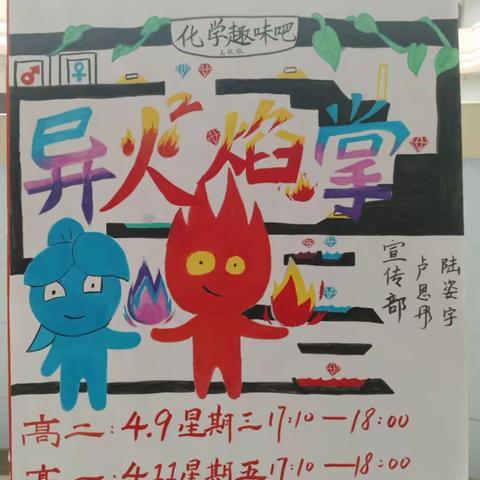 化学趣味吧
异火焰掌
宣传部
卢恩彤
陆姿宇
高二：4.9星期三17:10—18:00
高一：4.11星期五17:10—18:00